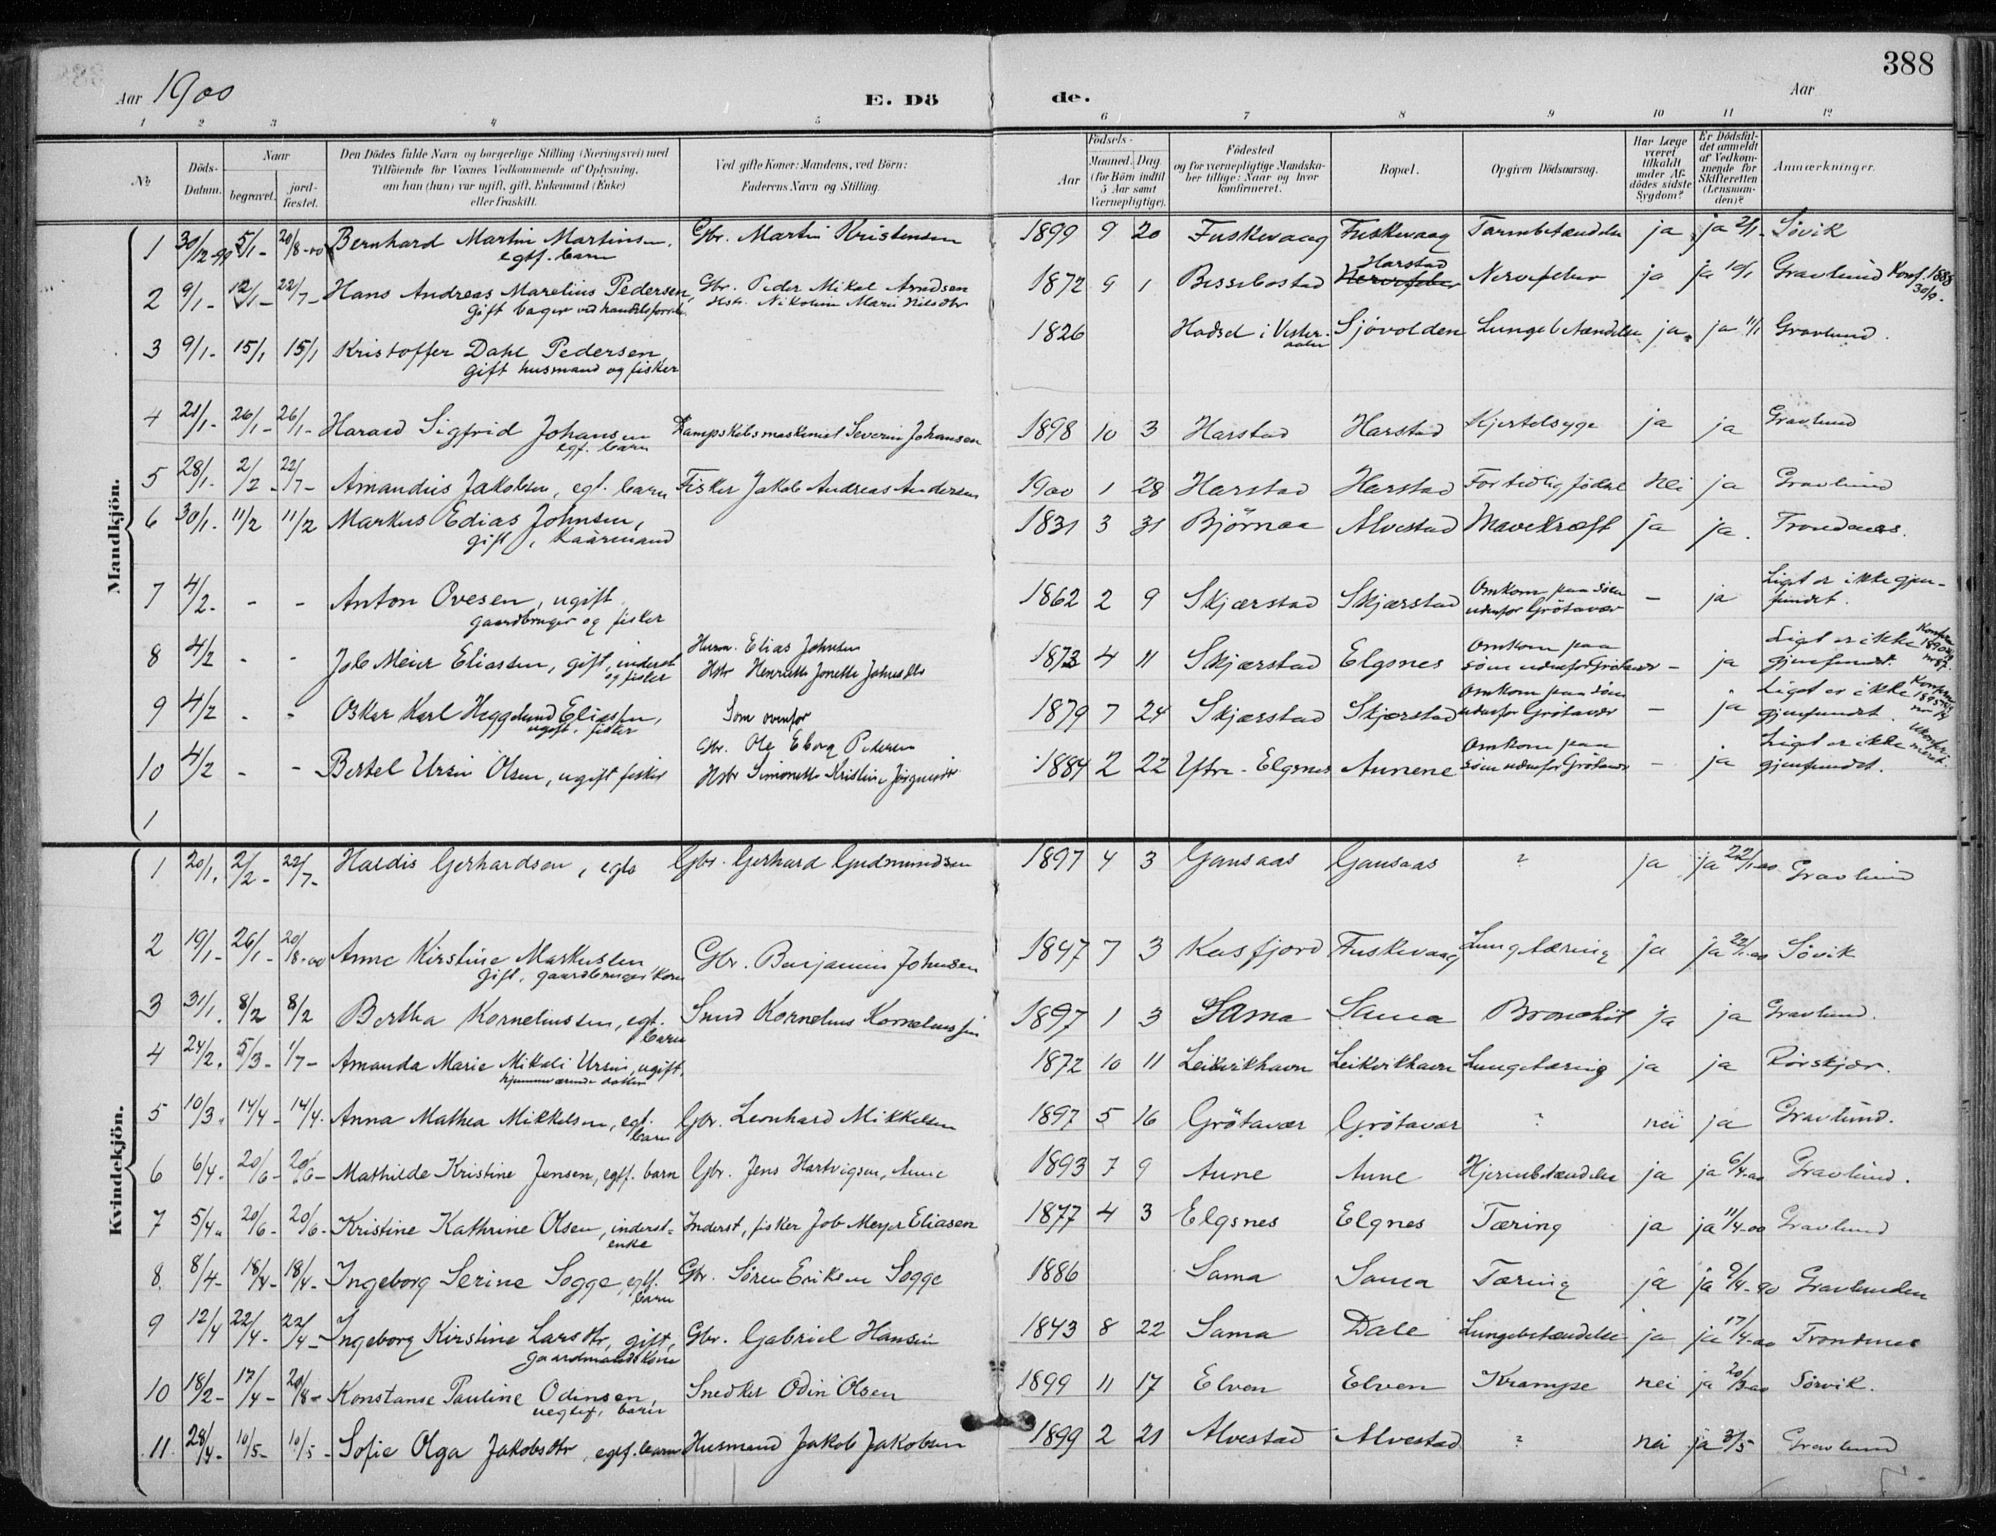 388
Aar 1900
E. Dö de.
Aar
1 2 3 4 5 6 7 8 9 10 11 12
№
Döds-Datum.
Naar
begravet.
jord-fæstet.
Den Dödes fulde Navn og borgerlige Stilling (Næringsvei) med
Tilföiende for Voxnes Vedkommende af Oplysning,
om han (hun) var ugift, gift, Enkemand (Enke)
eller fraskilt.
Ved gifte Koner: Mandens, ved Börn:
Faderens Navn og Stilling.
Födsels-
Aar
Maaned. Dag
(for Börn indtil
5 Aar samt
Værnepligtige).
Födested
og for værnepligtige Mandska-
ber tillige: Naar og hvor
konfirmeret.
Bopæl.
Opgiven Dödsaarsag.
Har Læge
været
tilkaldt
under Af-
dödes sidste
Sygdom?
Er Dödsfal-
det anmeldt
af Vedkom-
mende for
Skifteretten
(Lensman-
den)?
Anmærkninger.
Mandkjön.
1 30/12-99 5/1- 20/8-00 Bernhard Martin Martinsen, Gbr. Martin Kristensen 1899 9 20 Fuskevaag Fuskevaag Tarmbetændelse ja ja 2/1- Sövik
egtf. barn
2 9/1- 12/1- 22/7- Hans Andreas Marelius Pedersen, Gbr. Peder Mikal Arndsen 1872 9 1 Bessebostad Harstad Nervefeber Nervefeber ja ja 10/1 Gravlund Konf. 1888
gift bager ved Hstr. Nikolina Marie Nilsdtr 30/9.
3 9/1- 15/1 15/1 Kristoffer Dahl Pedersen, 1826 Hadsel i Vester- Sjövolden Lungebetændelse ja ja 11/1 Gravlund.
gift husmand og fisker aalen
4 21/1- 26/1- 26/1- Harald Sigfrid Johansen Dampskibsmaskinist Severin Johansen 1898 10 3 Harstad Harstad Kjertelsyge ja ja Gravlund
egf. barn
5 28/1- 2/2- 22/7- Amandus Jakobsen, egt. barn Fisker Jakob Andreas Andersen 1900 1 28 Harstad Harstad For tidlig födsel nei ja Gravlund
6 30/1- 11/2 11/2 Markus Edias Johnsen, 1831 3 31 Björnaa Alvestad Mavekræft ja ja. Trondenæs.
gift, Kaarmand
7 4/2- - - Anton Ovesen, ugift 1862 2 9 Skjærstad Skjærstad Omkom paa söen - ja Liget er ikke gjen-
gaardbruger og fisker udenfor Grötavær fundet.
8 4/2 - - Job Meier Eliassen, gift, inderst Husm. Elias Johnsen 1873 4 11 Skjærstad Elgsnes Omkom paa - ja Liget er ikke
og fisker Hstr Henriette Jonette söen udenfor Grötavær gjenfundet.
9 4/2 - - Oskar Karl Heggelund Eliassen, Som ovenfor 1879 7 24 Skjærstad Skjærstad Omkom paa söen - ja Liget er ikke
ugift, fisker udenfor Grötavær gjenfundet.
10 4/2 - - Bertel Ursin Olsen, ugift fisker Gbr. Ole Eberg Pedersen 1884 2 22 Ytre-Elgsnes Aunene Omkom paa - ja Liget er ikke Ukonfir-
Hstr Simonette Kristine söen udenfor Grötavær gjenfundet. meret.
1
Kvindekjön.
1 20/1. 2/2- 22/7- Haldis Gerhardsen, egtb Gbr. Gerhard Gudmundsen 1897 4 3 Gansaas Gansaas ? ja ja 22/1-00 Gravlund
2 19/1- 26/1- 20/8-00 Anne Kirstine Markussen Gbr. Benjamin Johnsen 1847 7 3 Kasfjord Fuskevaag Lungetæring ja ja 22/1-00 Sövik
gift, gaardbruger kone
3 31/1. 8/2 8/2 Bertha Korneliussen, egt. Smed Kornelius Korneliussen 1897 1 3 Sama Sama Bronchit ja ja Gravlund.
barn
4 24/2. 5/3- 1/7- Amanda Marie Mikali Ursin, ugift, 1872 10 11 Leikvikhavn Leikvikhavn Lungetæring ja ja Rörskjær.
hjemmeværende datter
5 10/3. 14/4- 14/4. Anna Mathea Mikkelsen, egt. Gbr. Leonhard Mikkelsen 1897 5 16 Grötavær Grötavær ? nei ja Gravlund.
barn
6 6/4- 20/6- 20/6- Mathilde Kristine Jensen, egtf. barn Gbr. Jens Hartvigsen, Aune 1893 7 9 Aune Aune Hjernebetændelse ja ja 6/4-00 Gravlund.
7 5/4- 20/6- 20/6- Kristine Kathrine Olsen, inderst- Inderst, fisker Job Meyer Eliasen 1877 4 3 Elgsnes Elgnes Tæring ja ja 11/4-00 Gravlund
enke
8. 8/4- 18/4- 18/4- Ingeborg Serine Sogge, egtf. Gbr. Sören Eriksen Sogge 1886 Sama Sama Tæring ja ja 9/4-90 Gravlunden
barn
9 12/4 22/4- 22/4- Ingeborg Kirstine Larsdtr, gift, Gbr. Gabriel Hansen 1843 8 22 Sama Dale Lungebetændelse ja ja 17/4-00 Trondenes
gaardmandskone
10 18/2- 17/4- 20/8- Konstanse Pauline Odinsen, Snedker Odin Olsen 1899 11 17 Elven Elven Krampe nei ja 20/3-00 Sörvik.
uegtef. barn
11. 28/4- 10/5- 10/5- Sofie Olga Jakobsdtr, egtf. barn Husmand Jakob Jakobsen 1899 2 21 Alvestad Alvestad ? nei ja 3/5 Gravlund